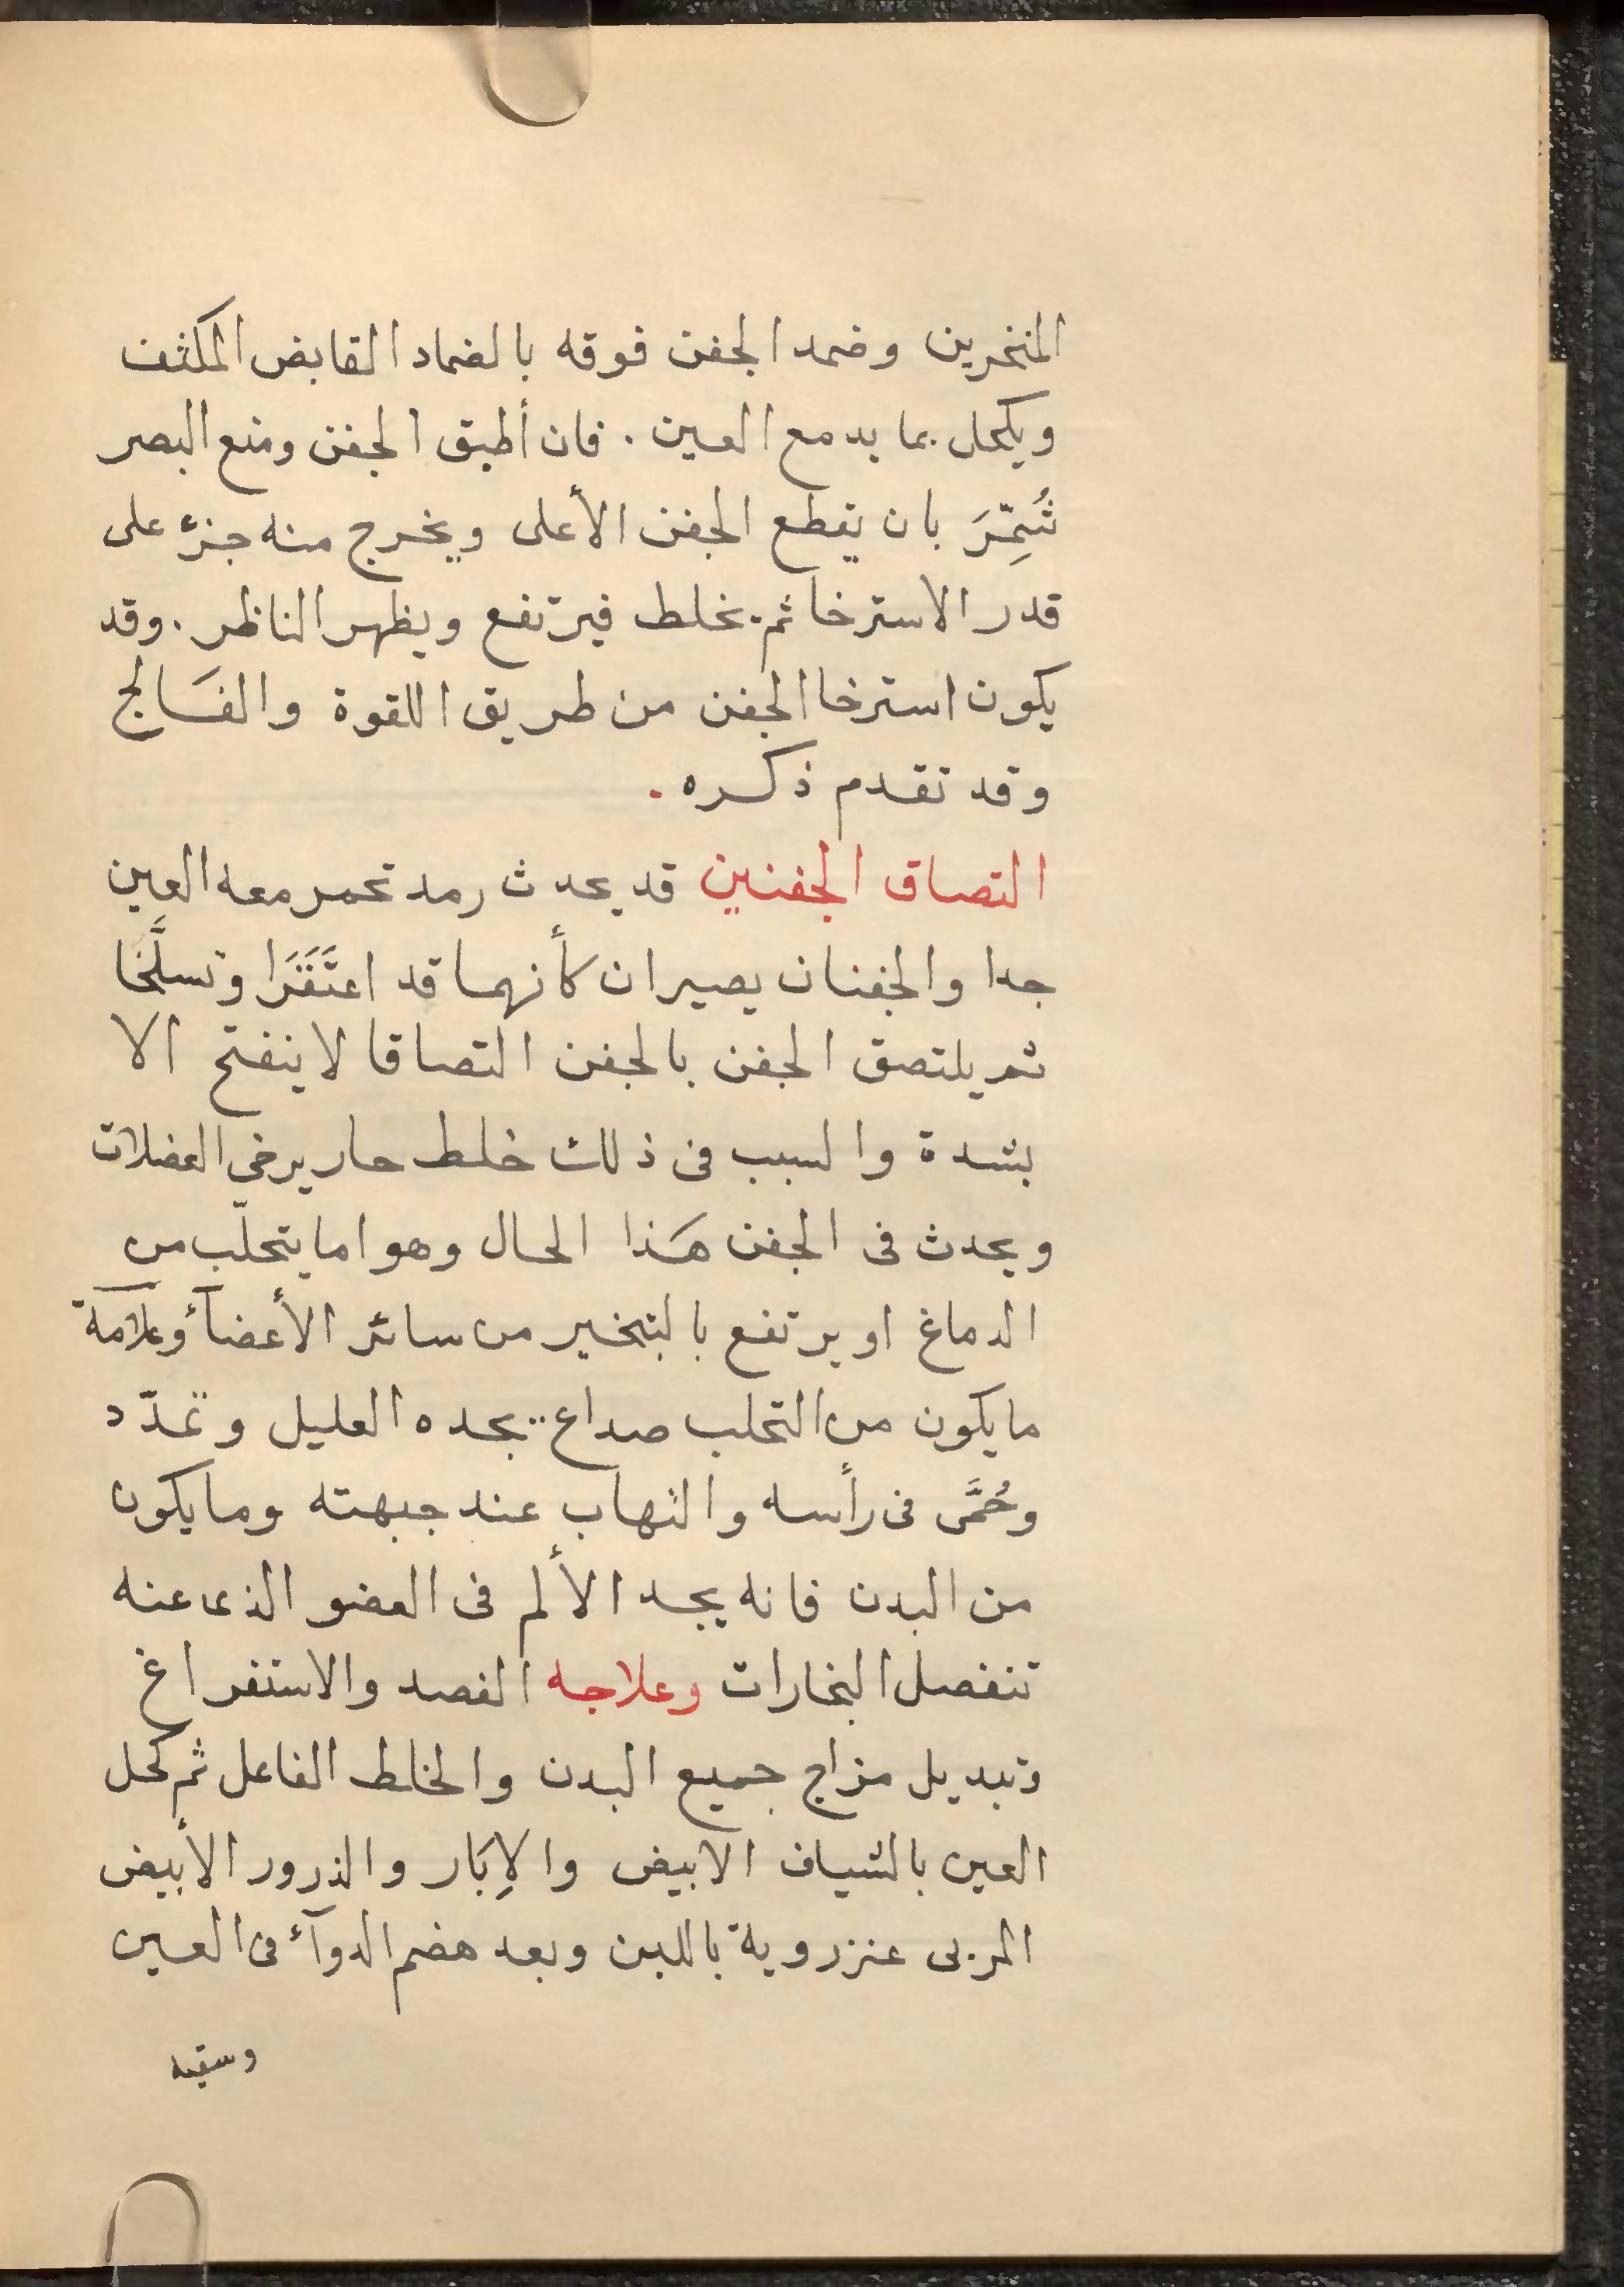 المنخرين وضمد الجفن فوقه بالضماد القابض المكثف
ويكحل بما يدمع العين . فان أطبق الجفن ومنع البصر
شُمِّرَ بان يقطع الجفن الأعلى ويخرج منه جزء على
قدر الاسترخا ثم يخلط فيرتفع ويظهر الناظر . وقد
يكون استرخا الجفن من طريق اللقوة والفَالج
وقد تقدم ذكره .
التصاق الجفنين قد يحدث رمد تحمر معه العين
جدا والجفنان يصيران كأنهما قد اعتَقَرَا وتسلَّخَا
ثم يلتصق الجفن بالجفن التصاقا لا ينفتح الا
بشدة والسبب فى ذلك خلط حار يرخي العضلات
ويحدث فى الجفن هَذا الحال وهو اما يتحلّب من
الدماغ او يرتفع بالتبخير من سائر الأعضآء وعلامة
ما يكون من التحلب صداع يجده العليل وتمدّد
وحُمَّى فى رأسه والتهاب عند جبهته وما يكون
من البدن فانه يجد الألم فى العضو الذى عنه
تنفصل البخارات وعلاجه الفصد والاستفراغ
وتبديل مزاج جميع البدن والخلط الفاعل ثم كحل
العين بالشياف الابيض والإبَار والذرور الأبيض
المربى عنزرويه باللبن وبعد هضم الدوآء فى العين
وسقيه